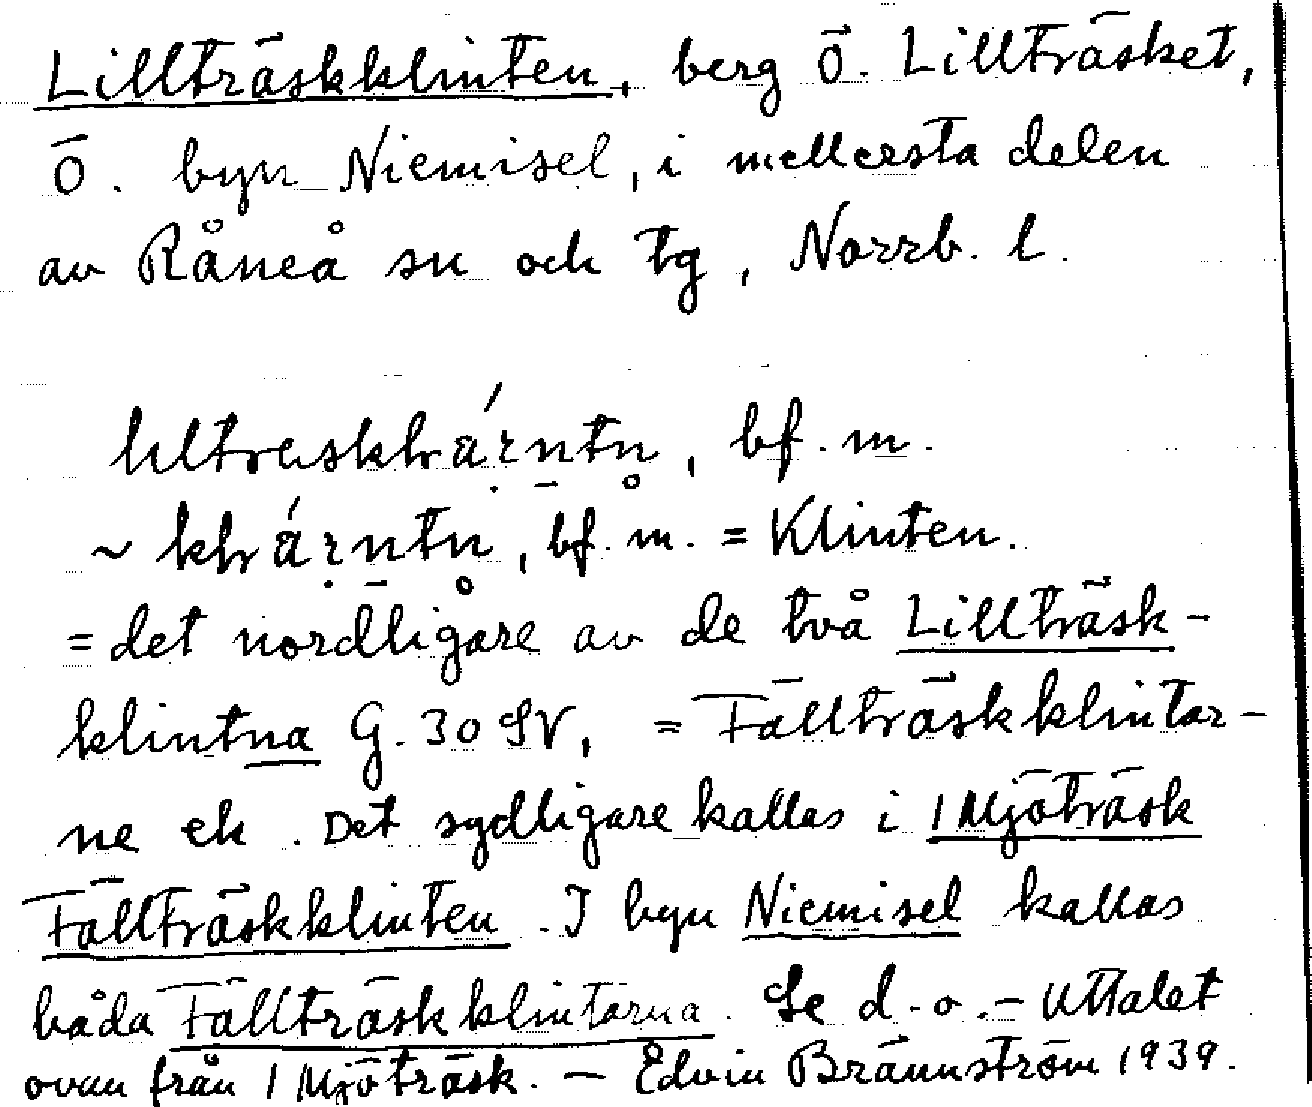 Lillträskklinten, berg Ö. Lillträsket,
Ö. byn Niemisel, i mellersta delen
av Råneå sn och tg, Norrb. l.
bf. m.
~ bf. m. = Klinten.
= det nordligare av de två Lillträsk-
klintna G. 30 SV, = Fällträskklintar-
ne ek. Det sydligare kallas i 1 Mjöträsk
Fällträskklinten. I byn Niemisel kallas
båda Fällträskklintarna. Se d. o. - Uttalet
ovan från 1 Mjöträsk. - Edvin Brännström 1939.